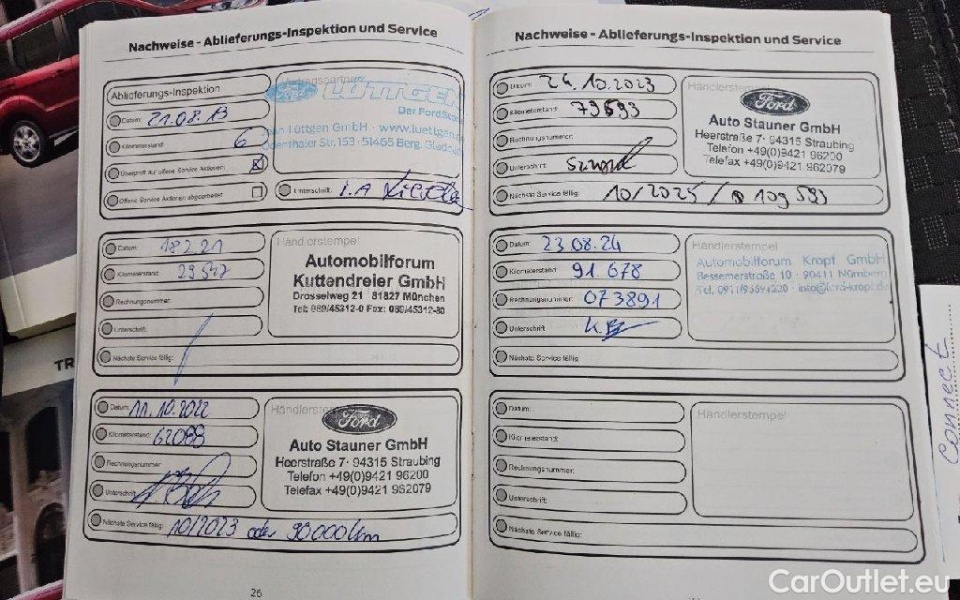 Nachweise - Ablieferungs-Inspektion und Service
Ablieferungs-Inspektion
Datum: 21.08.13
Kilometerstand: 6
Überprüft auf offene Service Aktionen:
Offene Service Aktionen abgearbeitet:
Vertragspartner
Ford LÜTTGEN
Der FordStore
Lüttgen GmbH · www.luettgen
Odenthaler Str. 153 · 51465 Berg. Gladbach
Unterschrift: i.A
Datum: 18 2 21
Kilometerstand: 29547
Rechnungsnummer:
Unterschrift:
Nächste Service fällig:
Händlerstempel
Automobilforum
Kuttendreier GmbH
Drosselweg 21 81827 München
Tel: 089/45312-0 Fax: 089/45312-80
Datum: 11.10.2022
Kilometerstand: 62088
Rechnungsnummer:
Unterschrift:
Nächste Service fällig: 10/2023 oder 90000km
Händlerstempel
Ford
Auto Stauner GmbH
Heerstraße 7 · 94315 Straubing
Telefon +49(0)9421 96200
Telefax +49(0)9421 962079
26
Nachweise - Ablieferungs-Inspektion und Service
Datum: 24.10.2023
Kilometerstand: 79593
Rechnungsnummer:
Unterschrift:
Nächste Service fällig: 10/2025 / 109593
Händlerstempel
Ford
Auto Stauner GmbH
Heerstraße 7 · 94315 Straubing
Telefon +49(0)9421 96200
Telefax +49(0)9421 962079
Datum: 23 08.24
Kilometerstand: 91.678
Rechnungsnummer: 073891
Unterschrift:
Nächste Service fällig:
Händlerstempel
Automobilforum Kropf GmbH
Bessemerstraße 10 · 90411 Nürnberg
Datum:
Kilometerstand:
Rechnungsnummer:
Unterschrift:
Nächste Service fällig:
Händlerstempel
TR
Connect
CarOutlet.eu